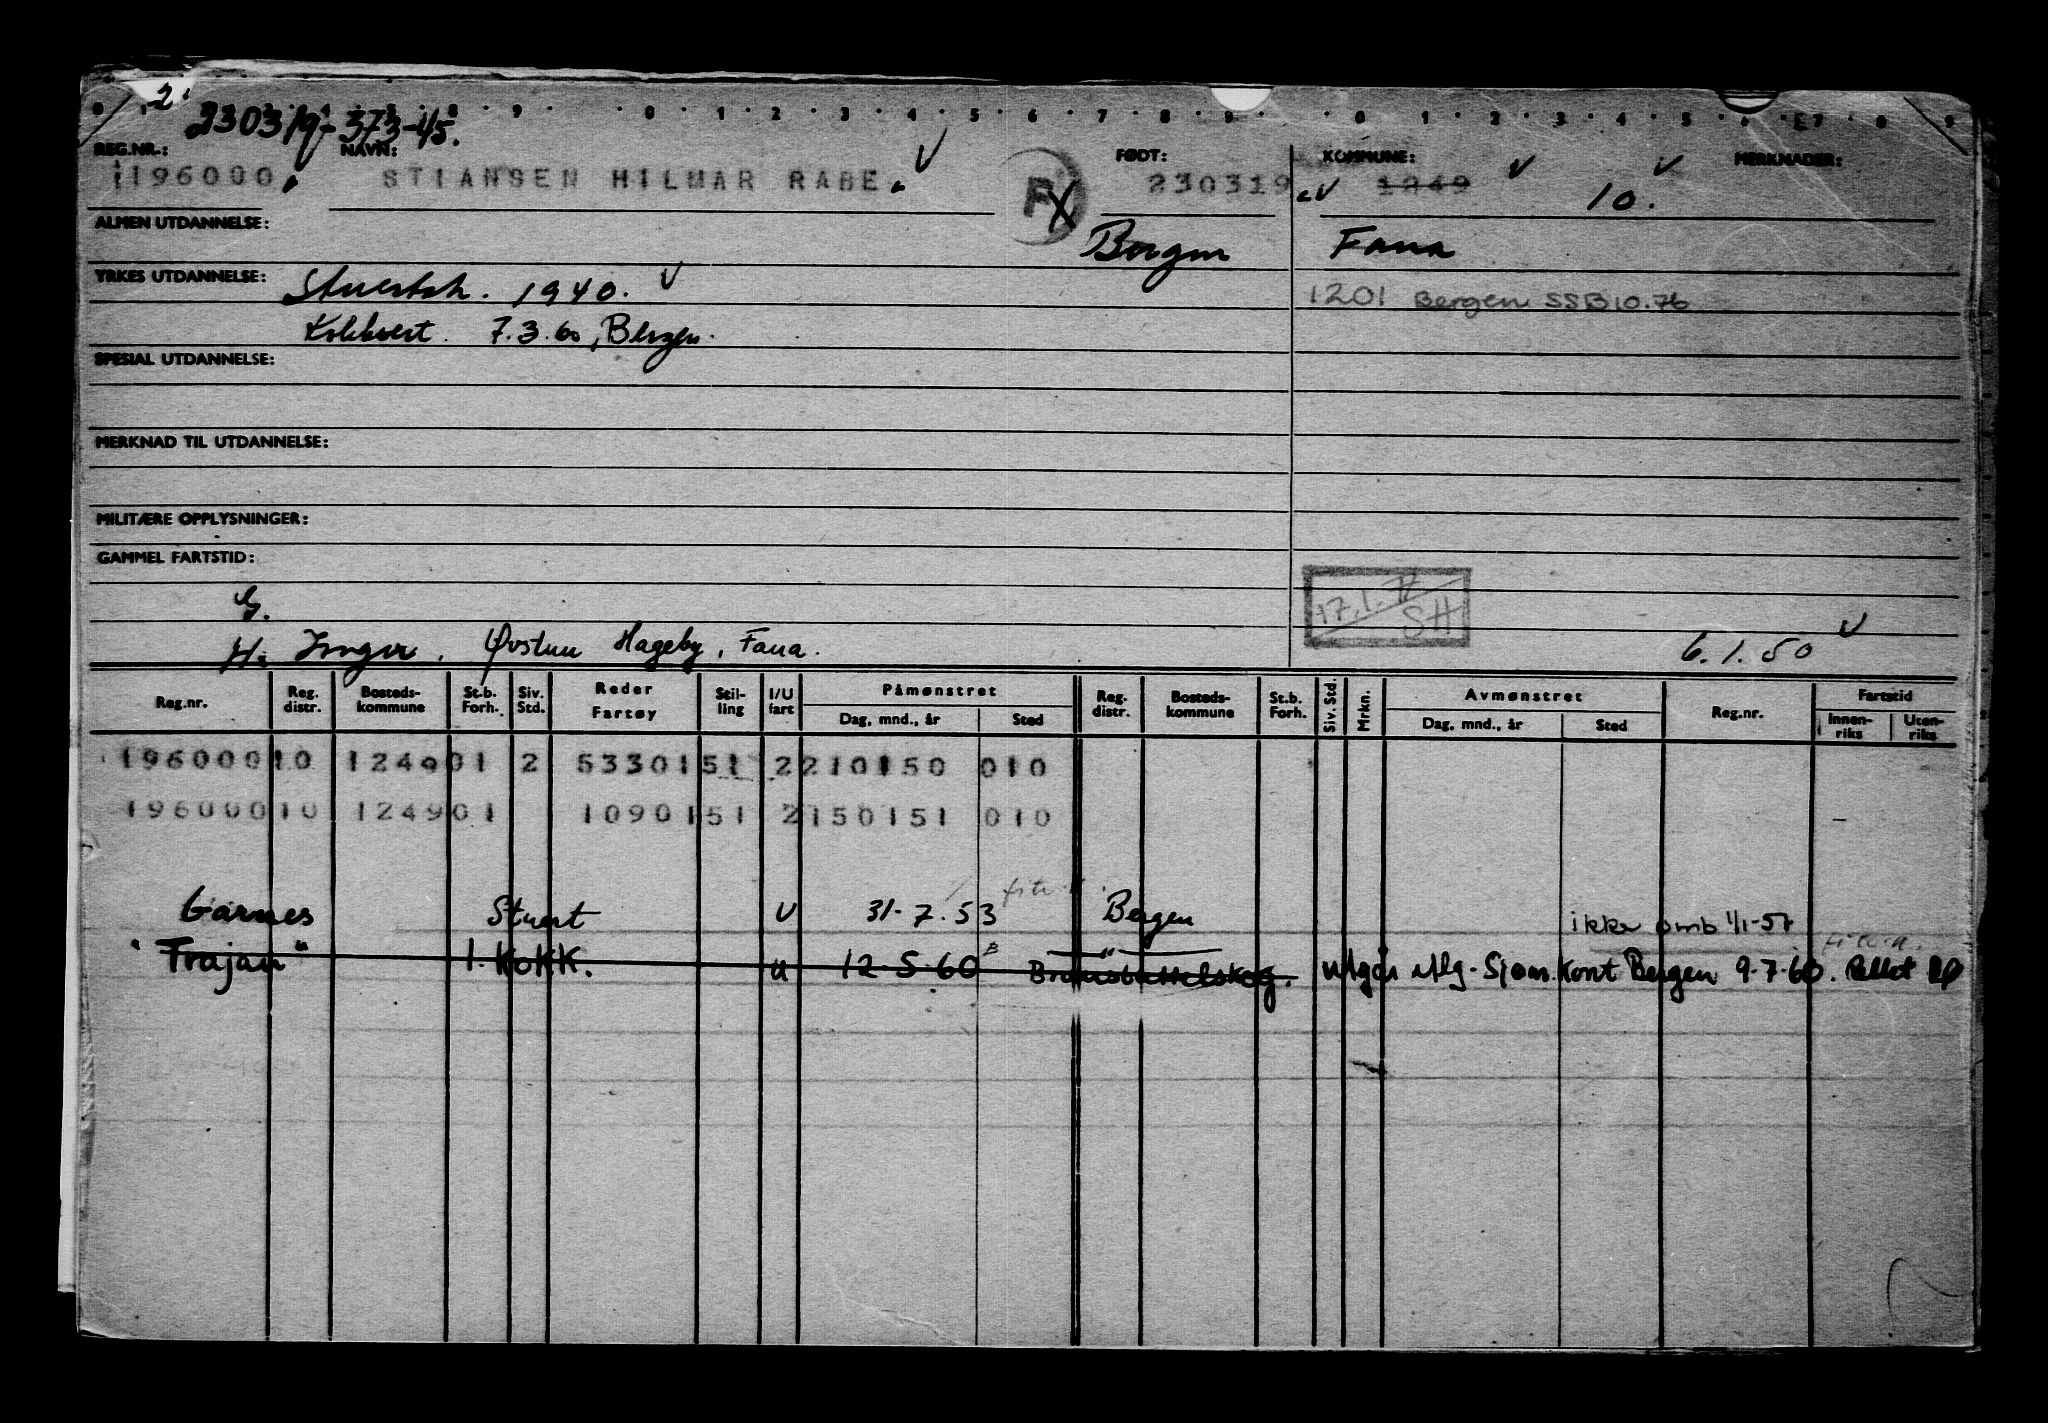 2
230319-373-45.
REG.NR.: NAVN: FØDT: KOMMUNE: MERKNADER:
196000. STIANSEN HILMAR RABE. 230319 1249 10.
ALMEN UTDANNELSE: Bergen Fana
YRKES UTDANNELSE: Stuertsk. 1940.
1201 Bergen SSB10.76
Kokksert. 7.3.60, Bergen.
SPESIAL UTDANNELSE:
MERKNAD TIL UTDANNELSE:
MILITÆRE OPPLYSNINGER:
GAMMEL FARTSTID:
17.1.
SH
G.
H: Inger. Hageby, Fana. 6.1.50
Reg.nr. Reg. distr. Bosteds- kommune St.b. Forh. Siv. Std. Reder Fartøy Stil- ling I/U fart Påmønstret Dag, mnd., år Sted Reg. distr. Bosteds- kommune St.b. Forh. Siv. Std. Mrkn. Avmønstret Dag, mnd., år Sted Reg.nr. Fartstid Innen- riks Uten- riks
19600010 124901 2 5330151 2210150 010
19600010 124901 1090151 2150151 010
Garnes Stuert U 31-7.53 Bergen ikke omb 1/1-57
"Trajan" 1. KOKK. u 12-5-60 Brunsbüttelskog. utgår Sjøm.kont Bergen 9-7-60.